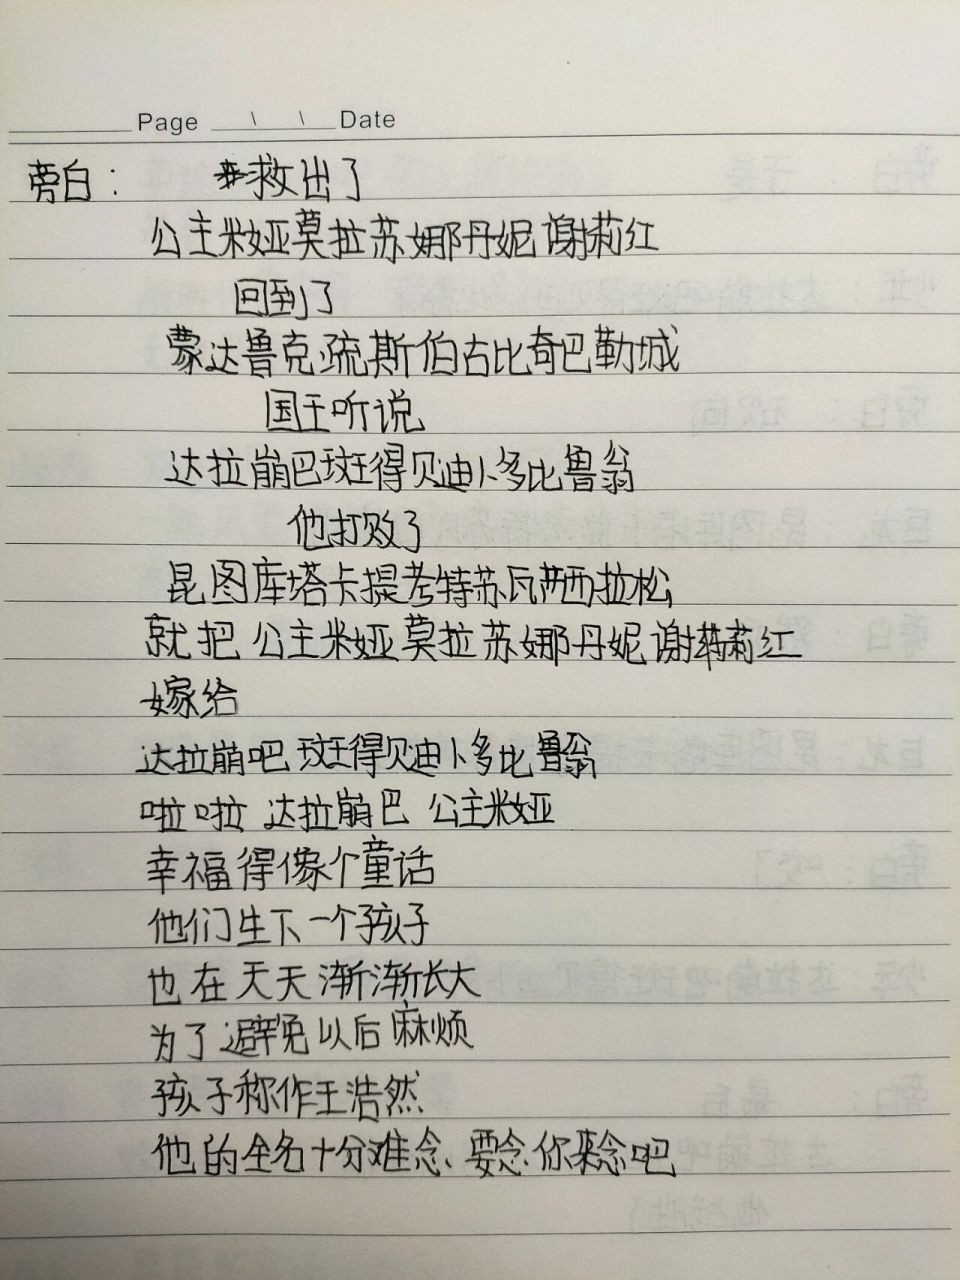 Page \ \ Date
旁白： 救出了
公主米娅莫拉苏娜丹妮谢莉红
回到了
蒙达鲁克疏斯伯古比奇巴勒城
国王听说
达拉崩巴斑得贝迪卜多比鲁翁
他打败了
昆图库塔卡提考特苏瓦西拉松
就把 公主米娅莫拉苏娜丹妮谢莉红
嫁给
达拉崩吧 斑得贝迪卜多比鲁翁
啦啦 达拉崩巴 公主米娅
幸福得像个童话
他们生下一个孩子
也在天天渐渐长大
为了避免以后麻烦
孩子称作王浩然
他的全名十分难念、要念你来念吧